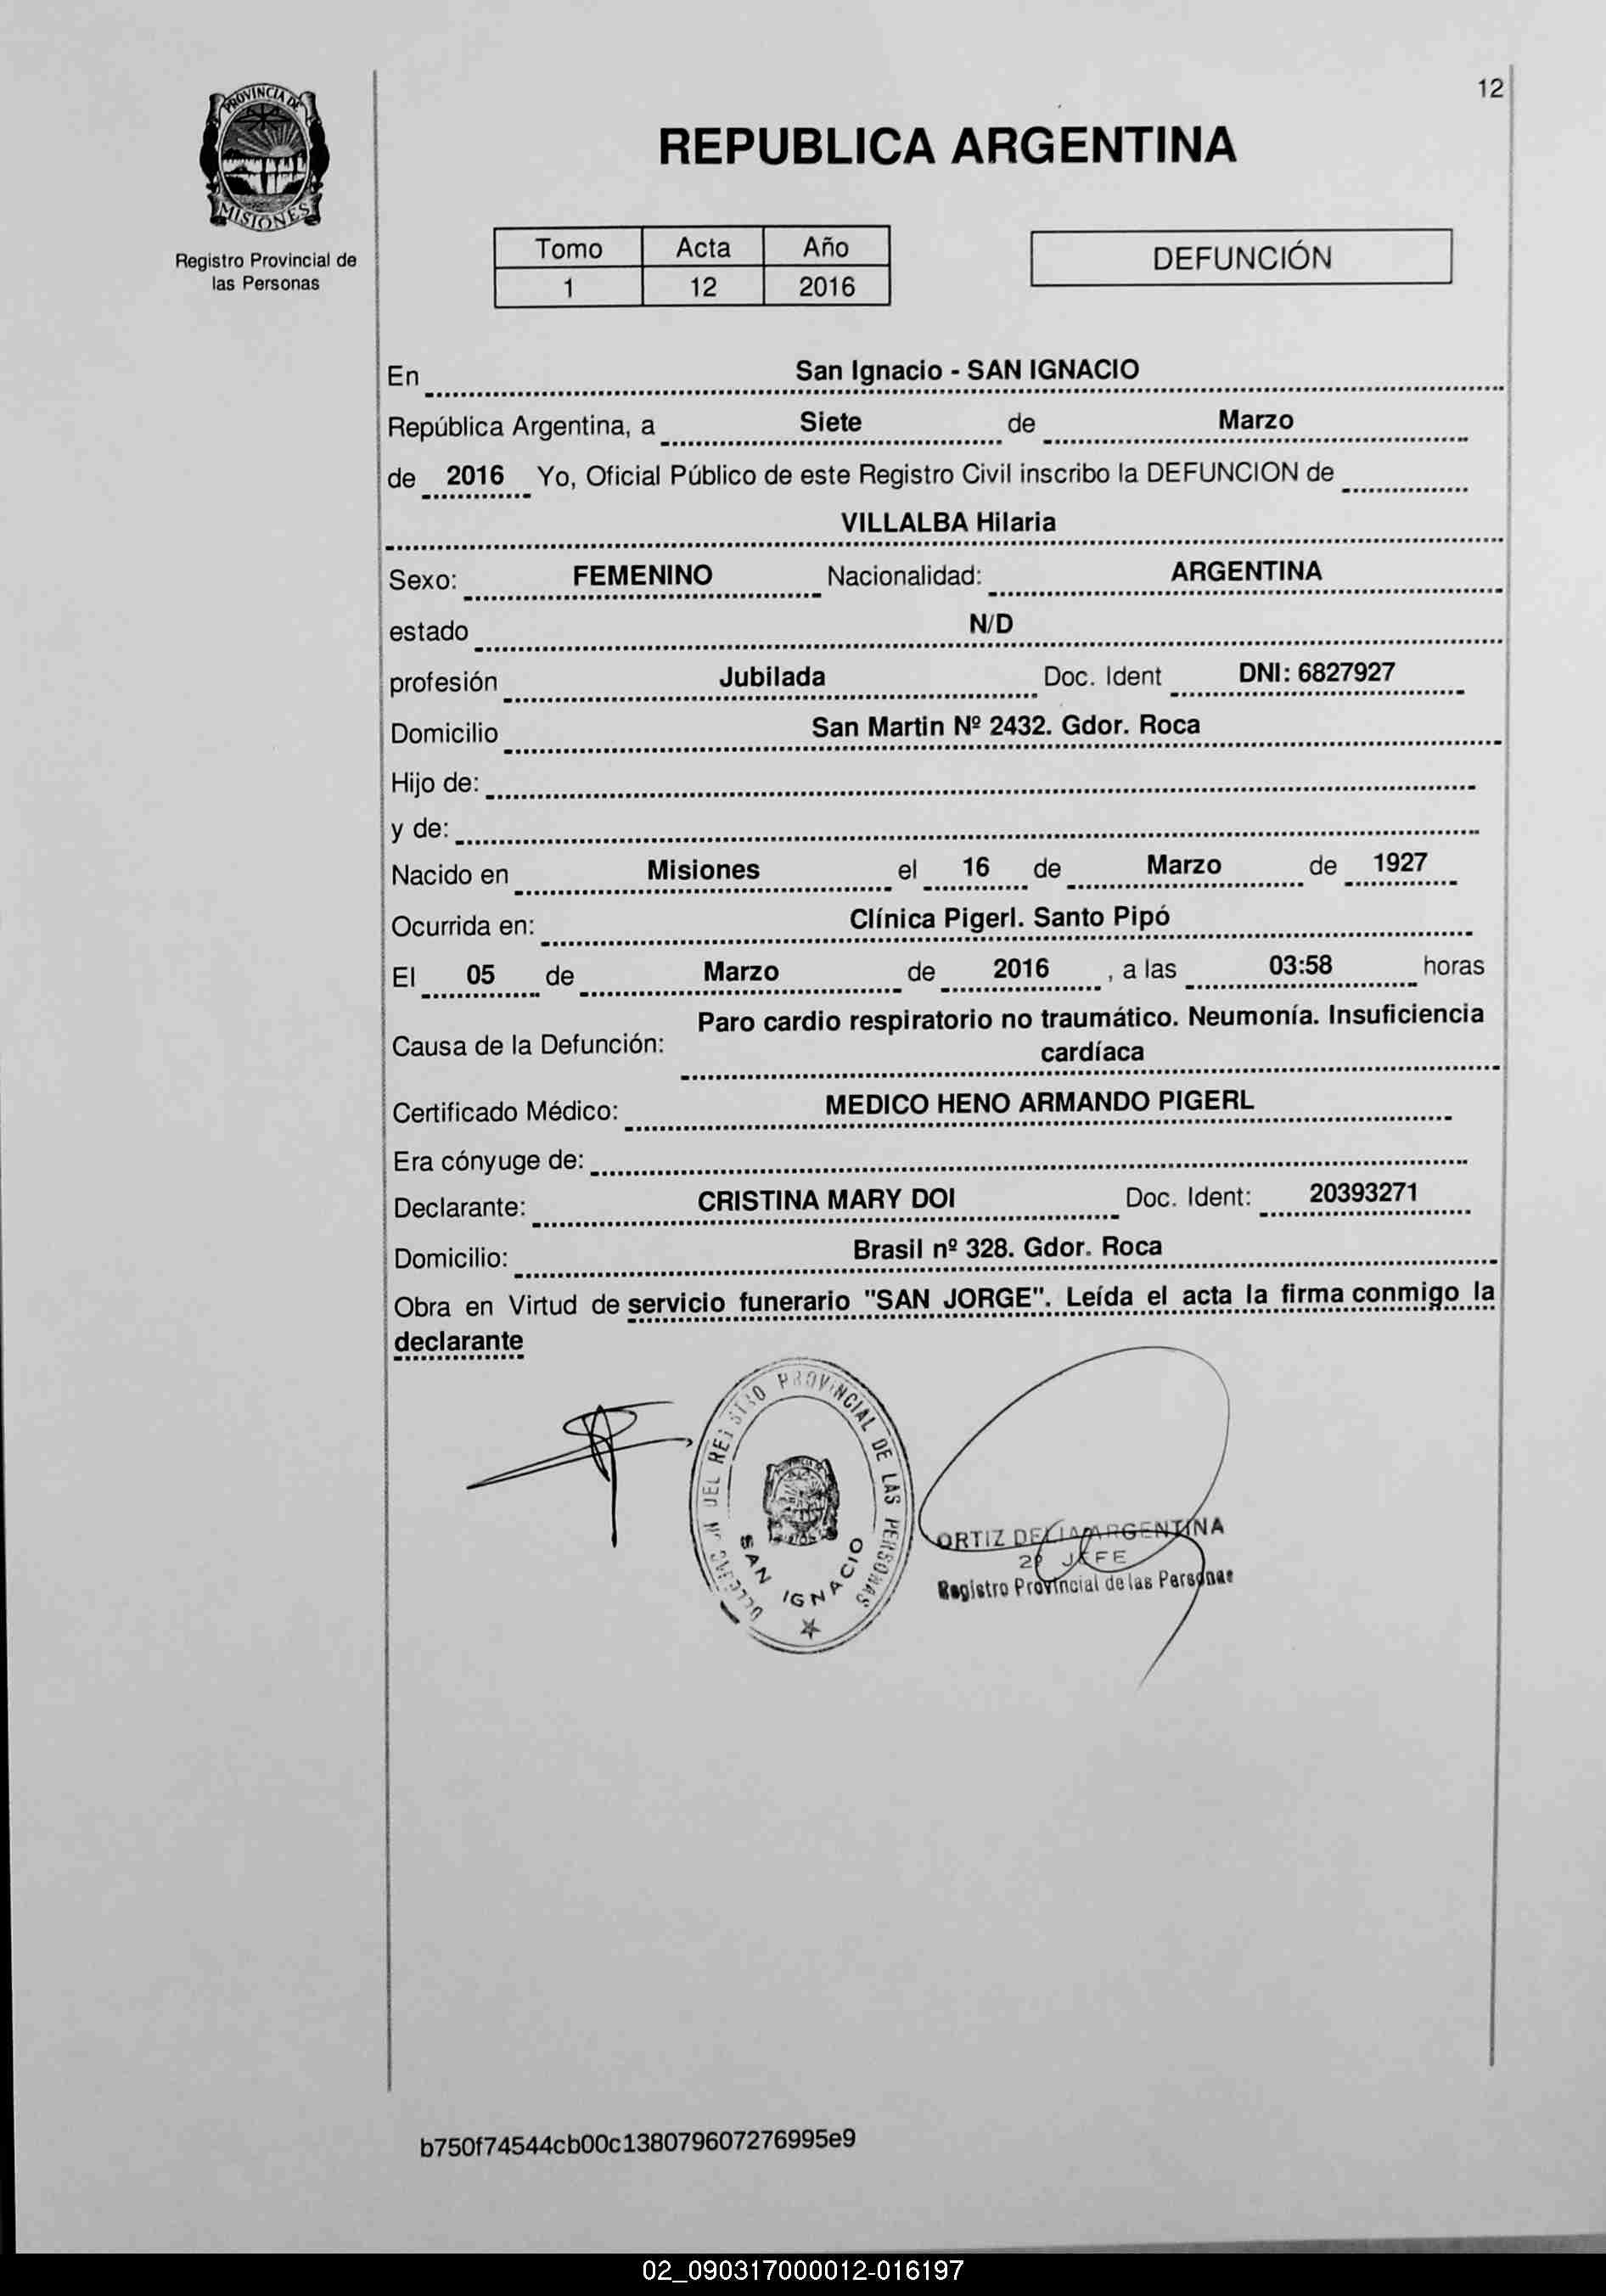 12
PROVINCIA DE
MISIONES
Registro Provincial de
las Personas
REPUBLICA ARGENTINA
Tomo Acta Año
1 12 2016
DEFUNCIÓN
En San Ignacio - SAN IGNACIO
República Argentina, a Siete de Marzo
de 2016 Yo, Oficial Público de este Registro Civil inscribo la DEFUNCION de
VILLALBA Hilaria
Sexo: FEMENINO Nacionalidad: ARGENTINA
estado N/D
profesión Jubilada Doc. Ident DNI: 6827927
Domicilio San Martin Nº 2432. Gdor. Roca
Hijo de:
y de:
Nacido en Misiones el 16 de Marzo de 1927
Ocurrida en: Clínica Pigerl. Santo Pipó
El 05 de Marzo de 2016 , a las 03:58 horas
Causa de la Defunción: Paro cardio respiratorio no traumático. Neumonía. Insuficiencia
cardíaca
Certificado Médico: MEDICO HENO ARMANDO PIGERL
Era cónyuge de:
Declarante: CRISTINA MARY DOI Doc. Ident: 20393271
Domicilio: Brasil nº 328. Gdor. Roca
Obra en Virtud de servicio funerario "SAN JORGE". Leída el acta la firma conmigo la
declarante
DEL REGISTRO PROVINCIAL DE LAS PERSONAS
SAN IGNACIO
ORTIZ DELIA ARGENTINA
2º JEFE
Registro Provincial de las Personas
b750f74544cb00c138079607276995e9
02_090317000012-016197